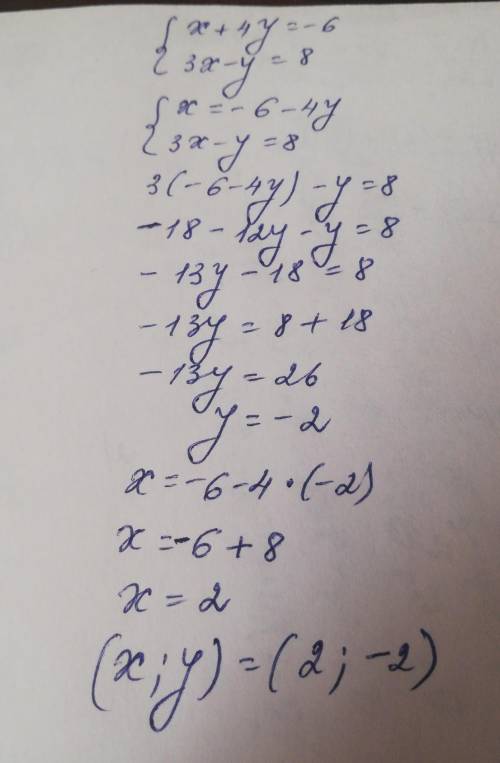 { x + 4y = -6
3x - y = 8
{ x = -6 - 4y
3x - y = 8
3(-6 - 4y) - y = 8
-18 - 12y - y = 8
- 13y - 18 = 8
-13y = 8 + 18
-13y = 26
y = -2
x = -6 - 4 · (-2)
x = -6 + 8
x = 2
(x ; y) = (2 ; -2)